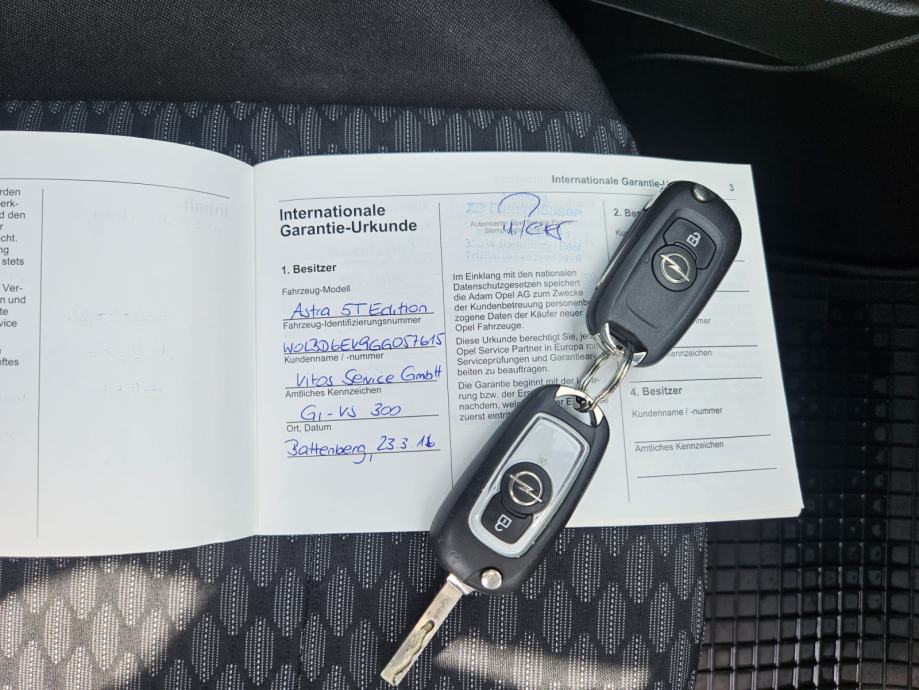 rden
erk-
d den
r
cht.
ng
stets
Ver-
n und
te
vice
n
eftes
Internationale
Garantie-Urkunde
1. Besitzer
Fahrzeug-Modell
Astra 5T Edition
Fahrzeug-Identifizierungsnummer
W0LBD6EV9GG057615
Kundenname / -nummer
Vitos Service GmbH
Amtliches Kennzeichen
GI-VS 300
Ort, Datum
Battenberg, 23.3.16
Internationale Garantie-U
3
Autorisierter Opel Service Partner
Im Einklang mit den nationalen
Datenschutzgesetzen speichert
die Adam Opel AG zum Zwecke
der Kundenbetreuung personenbe
zogene Daten der Käufer neuer
Opel Fahrzeuge.
Diese Urkunde berechtigt Sie, jed
Opel Service Partner in Europa mi
Serviceprüfungen und Garantiear-
beiten zu beauftragen.
Die Garantie beginnt mit der
rung bzw. der Ers
nachdem, welc
zuerst eintri
2. Bes
Ku
mer
ennzeichen
4. Besitzer
Kundenname / -nummer
Amtliches Kennzeichen